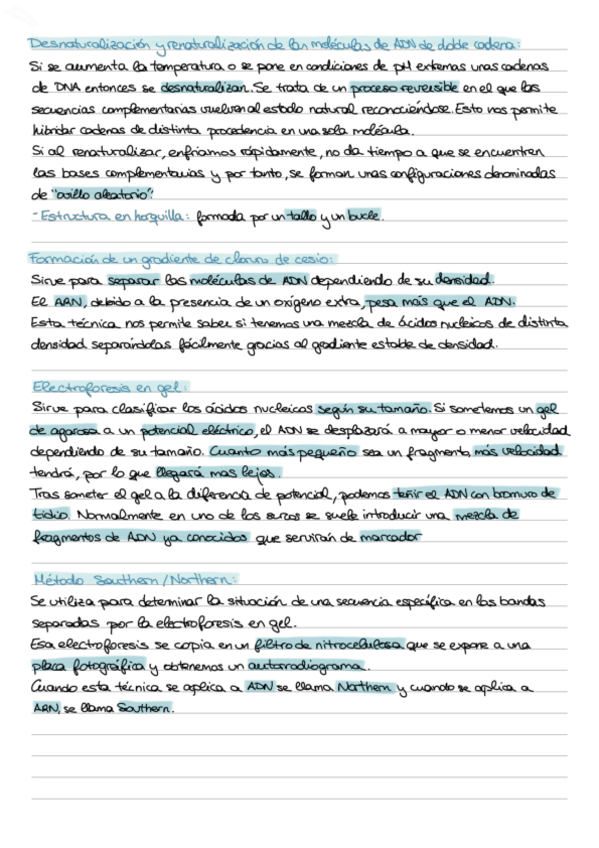 Desnaturalización y renaturalización de las moléculas de ADN de doble cadena:
Si se aumenta la temperatura o se pone en condiciones de pH extremas unas cadenas
de DNA entonces se desnaturalizan. Se trata de un proceso reversible en el que las
secuencias complementarias vuelven al estado natural reconociéndose. Esto nos permite
hibridar cadenas de distinta procedencia en una sola molécula.
Si al renaturalizar, enfriamos rápidamente, no da tiempo a que se encuentren
las bases complementarias y por tanto, se forman unas configuraciones denominadas
de "ovillo aleatorio".
- Estructura en horquilla: formada por un tallo y un bucle.
Formación de un gradiente de cloruro de cesio:
Sirve para separar las moléculas de ADN dependiendo de su densidad.
El ARN, debido a la presencia de un oxígeno extra, pesa más que el ADN.
Esta técnica nos permite saber si tenemos una mezcla de ácidos nucleicos de distinta
densidad separándolas fácilmente gracias al gradiente estable de densidad.
Electroforesis en gel:
Sirve para clasificar los ácidos nucleicos según su tamaño. Si sometemos un gel
de agarosa a un potencial eléctrico, el ADN se desplazará a mayor o menor velocidad
dependiendo de su tamaño. Cuanto más pequeño sea un fragmento, más velocidad
tendrá, por lo que llegará mas lejos.
Tras someter el gel a la diferencia de potencial, podemos teñir el ADN con bromuro de
tidio. Normalmente en uno de los surcos se suele introducir una mezcla de
fragmentos de ADN ya conocidos que servirán de marcador
Método Southern/Northern:
Se utiliza para determinar la situación de una secuencia específica en las bandas
separadas por la electroforesis en gel.
Esa electroforesis se copia en un filtro de nitrocelulosa que se expone a una
placa fotográfica y obtenemos un autorradiograma.
Cuando esta técnica se aplica a ADN se llama Northern y cuando se aplica a
ARN, se llama Southern.